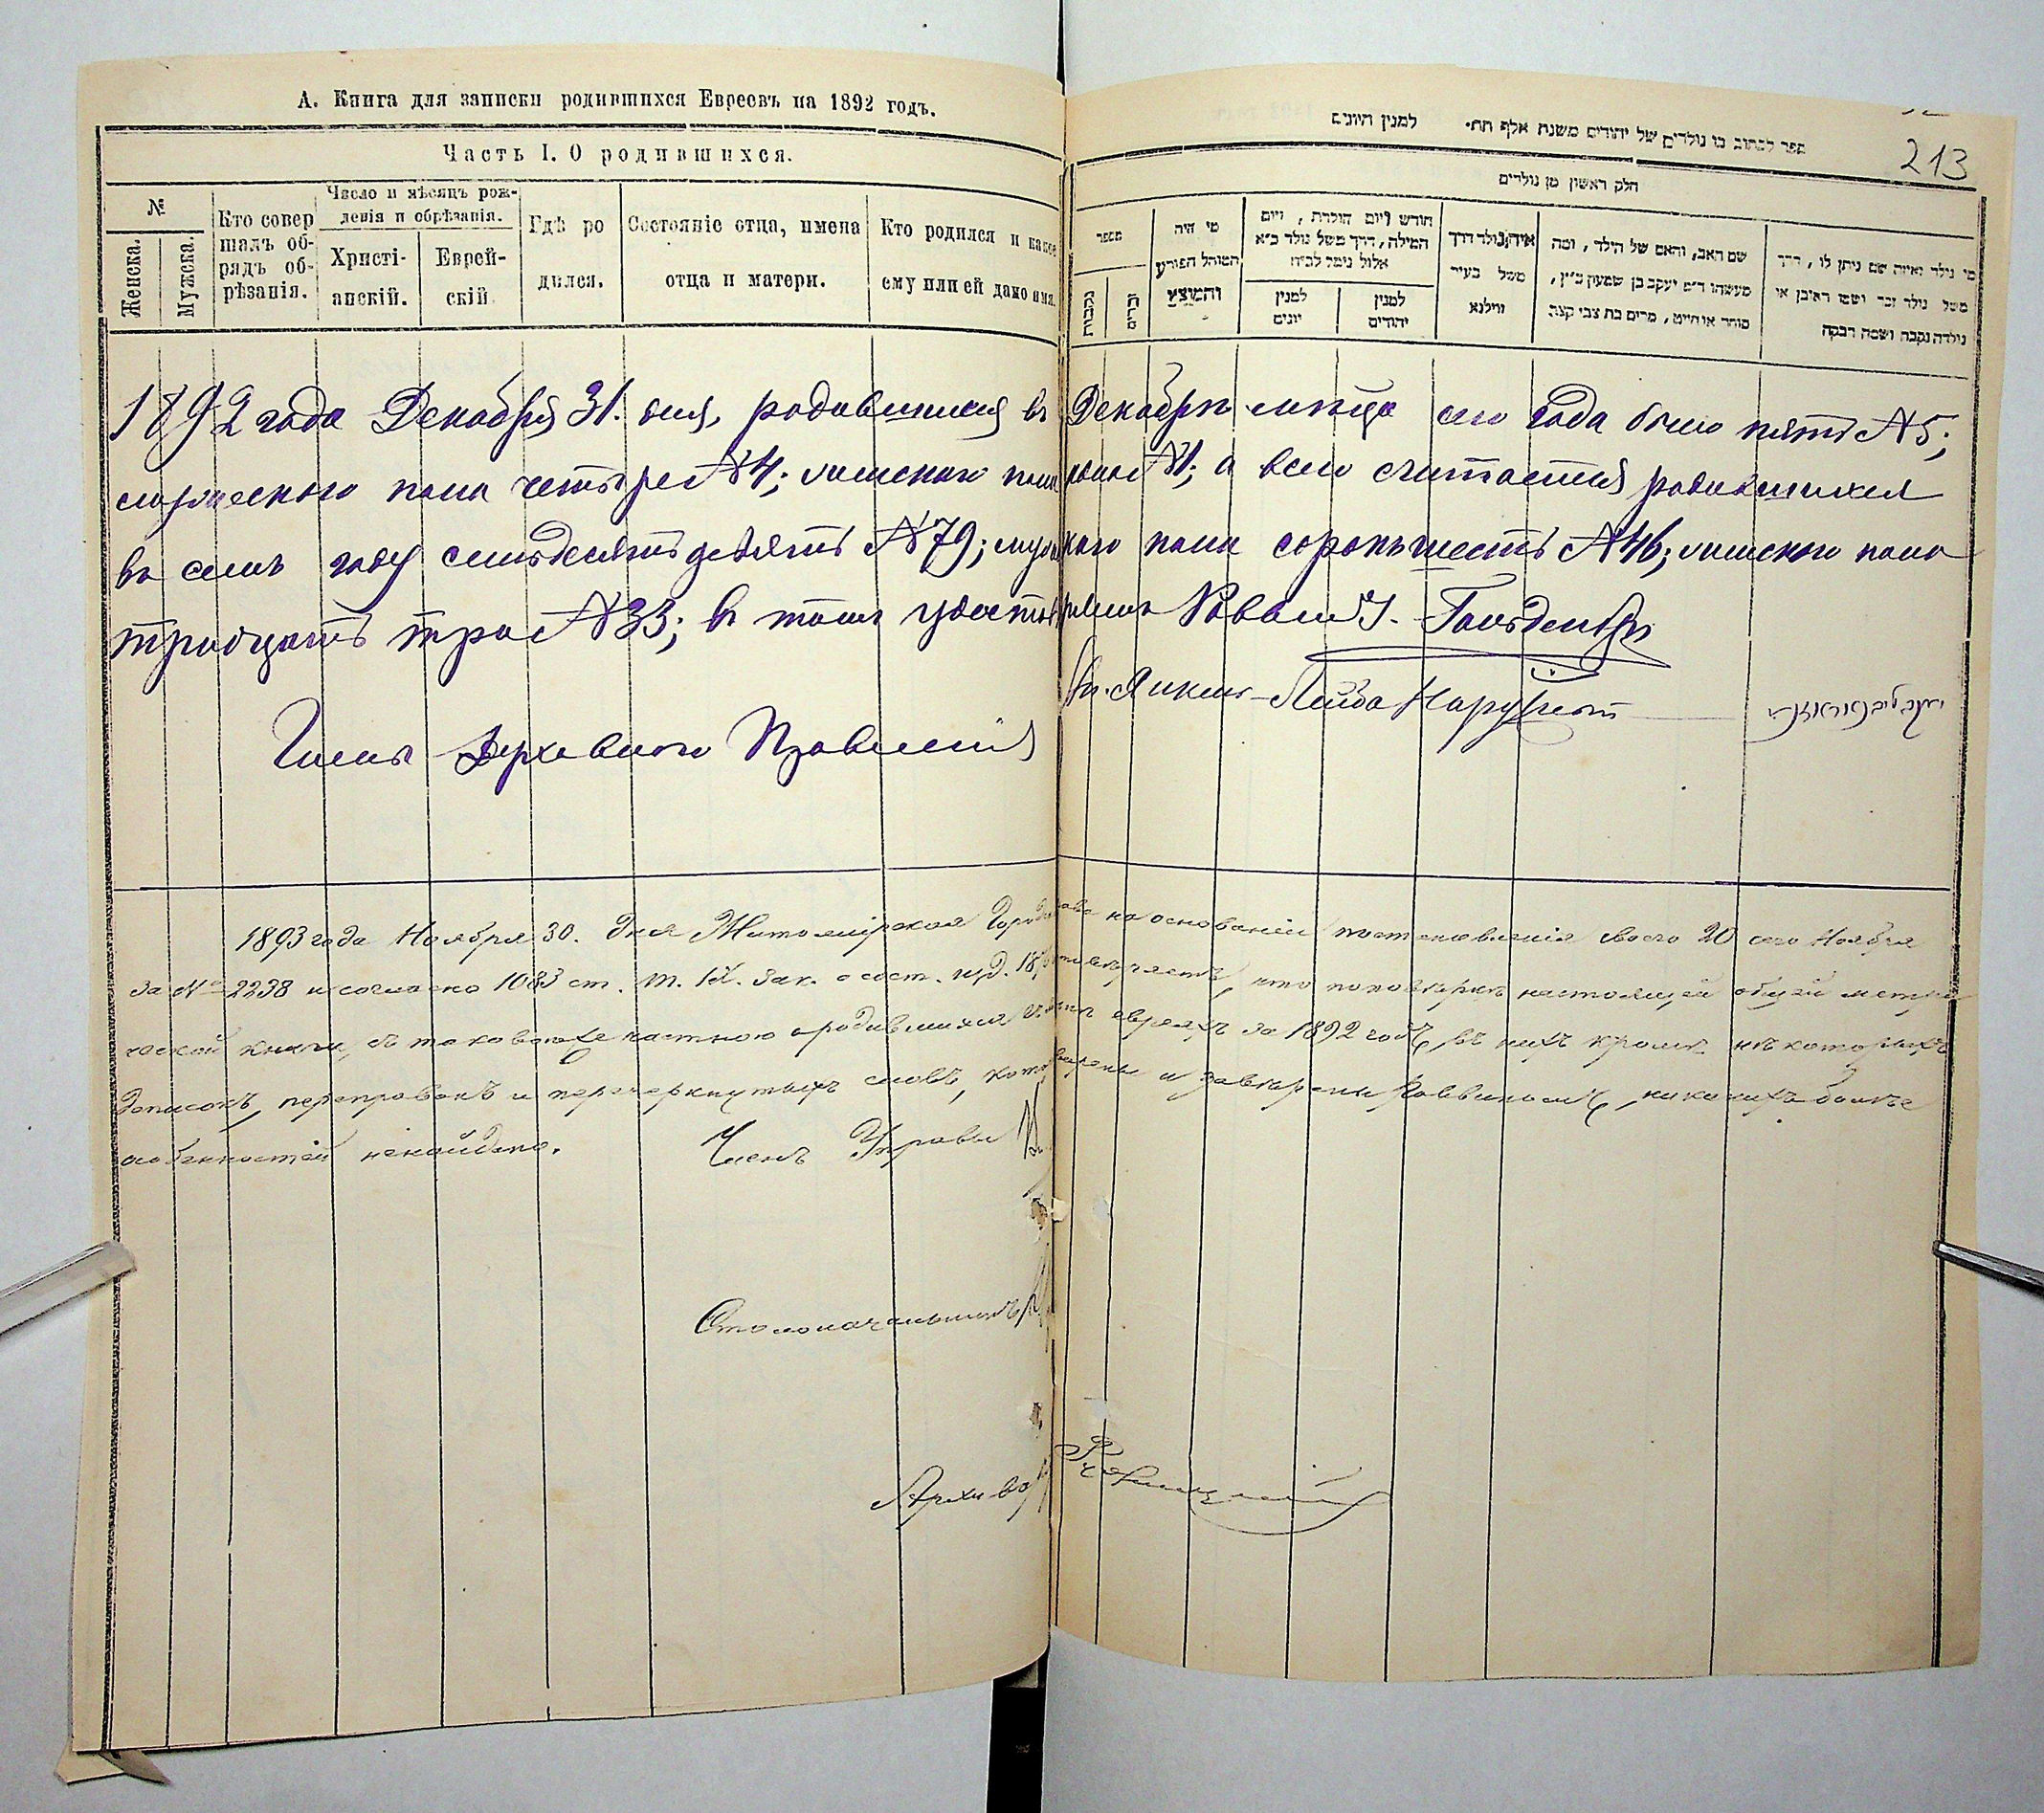 А. Книга для записки родившихся Евреевъ на 1892 годъ.
Часть I. О родившихся.
№
Женска.
Мужска.
Кто совер
шалъ об-
рядъ об-
рѣзанія.
Число и мѣсяцъ рож-
денія и обрѣзанія.
Христі-
анскій.
Еврей-
скій
Гдѣ ро
дился.
Состояніе отца, имена
отца и матери.
Кто родился и какое
ему или ей дано имя.
ספר לכתוב בו נולדים של יהודים משנת אלף תת• למנין היונים
213
חלק ראשון מן נולדים
מספר
נקבות
זכרים
מי היה
המוהל הפורע
והמוצץ
חודש ויום הולדת, ויום
המילה, דרך משל נולד כ״א
אלול נימל לכ״ח
למנין
יונים
למנין
יהודים
איה נולד דרך
משל בעיר
ווילנא
שם האב, והאם של הילד, ומה
מעשהו ד״מ יעקב בן שמעון כ״ץ,
סוחר או חייט, מרים בת צבי קצב
מי נולד ואיזה שם ניתן לו, דרך
משל נולד זכר ושמו ראובן או
נולדה נקבה ושמה רבקה
1892 года Декабря 31. дня, родившихся въ Декабрѣ мѣсяцѣ сего года было пять №5;
мужескаго пола четыре №4; женскаго пола одна №1; а всего считается родившихся
въ семъ году семьдесятъ девять №79; мужскаго пола сорокъ шесть №46; женскаго пола
тридцать три №33; въ томъ удостовѣряемъ Раввинъ
Членъ Духовного Правленія Янкель-Лейба
1893 года Ноября 30. дня Житомірская Городская Управа на основаніи постановленія своего 20 сего Ноября
за № 2238 и согласно 1083 ст. т. IX. Зак. о сост. изд. 1876 удостовѣряетъ, что по повѣркѣ настоящей общей метри
ческой книги, съ таковою же частною о родившихся евреяхъ за 1892 годъ, въ нихъ кромѣ нѣкоторыхъ
записокъ, переправокъ и перечеркнутыхъ словъ, оговорены и завѣрены Раввиномъ, никакихъ болѣе
особенностей не найдено. Членъ Управы
Столоначальникъ
Архиваріусъ